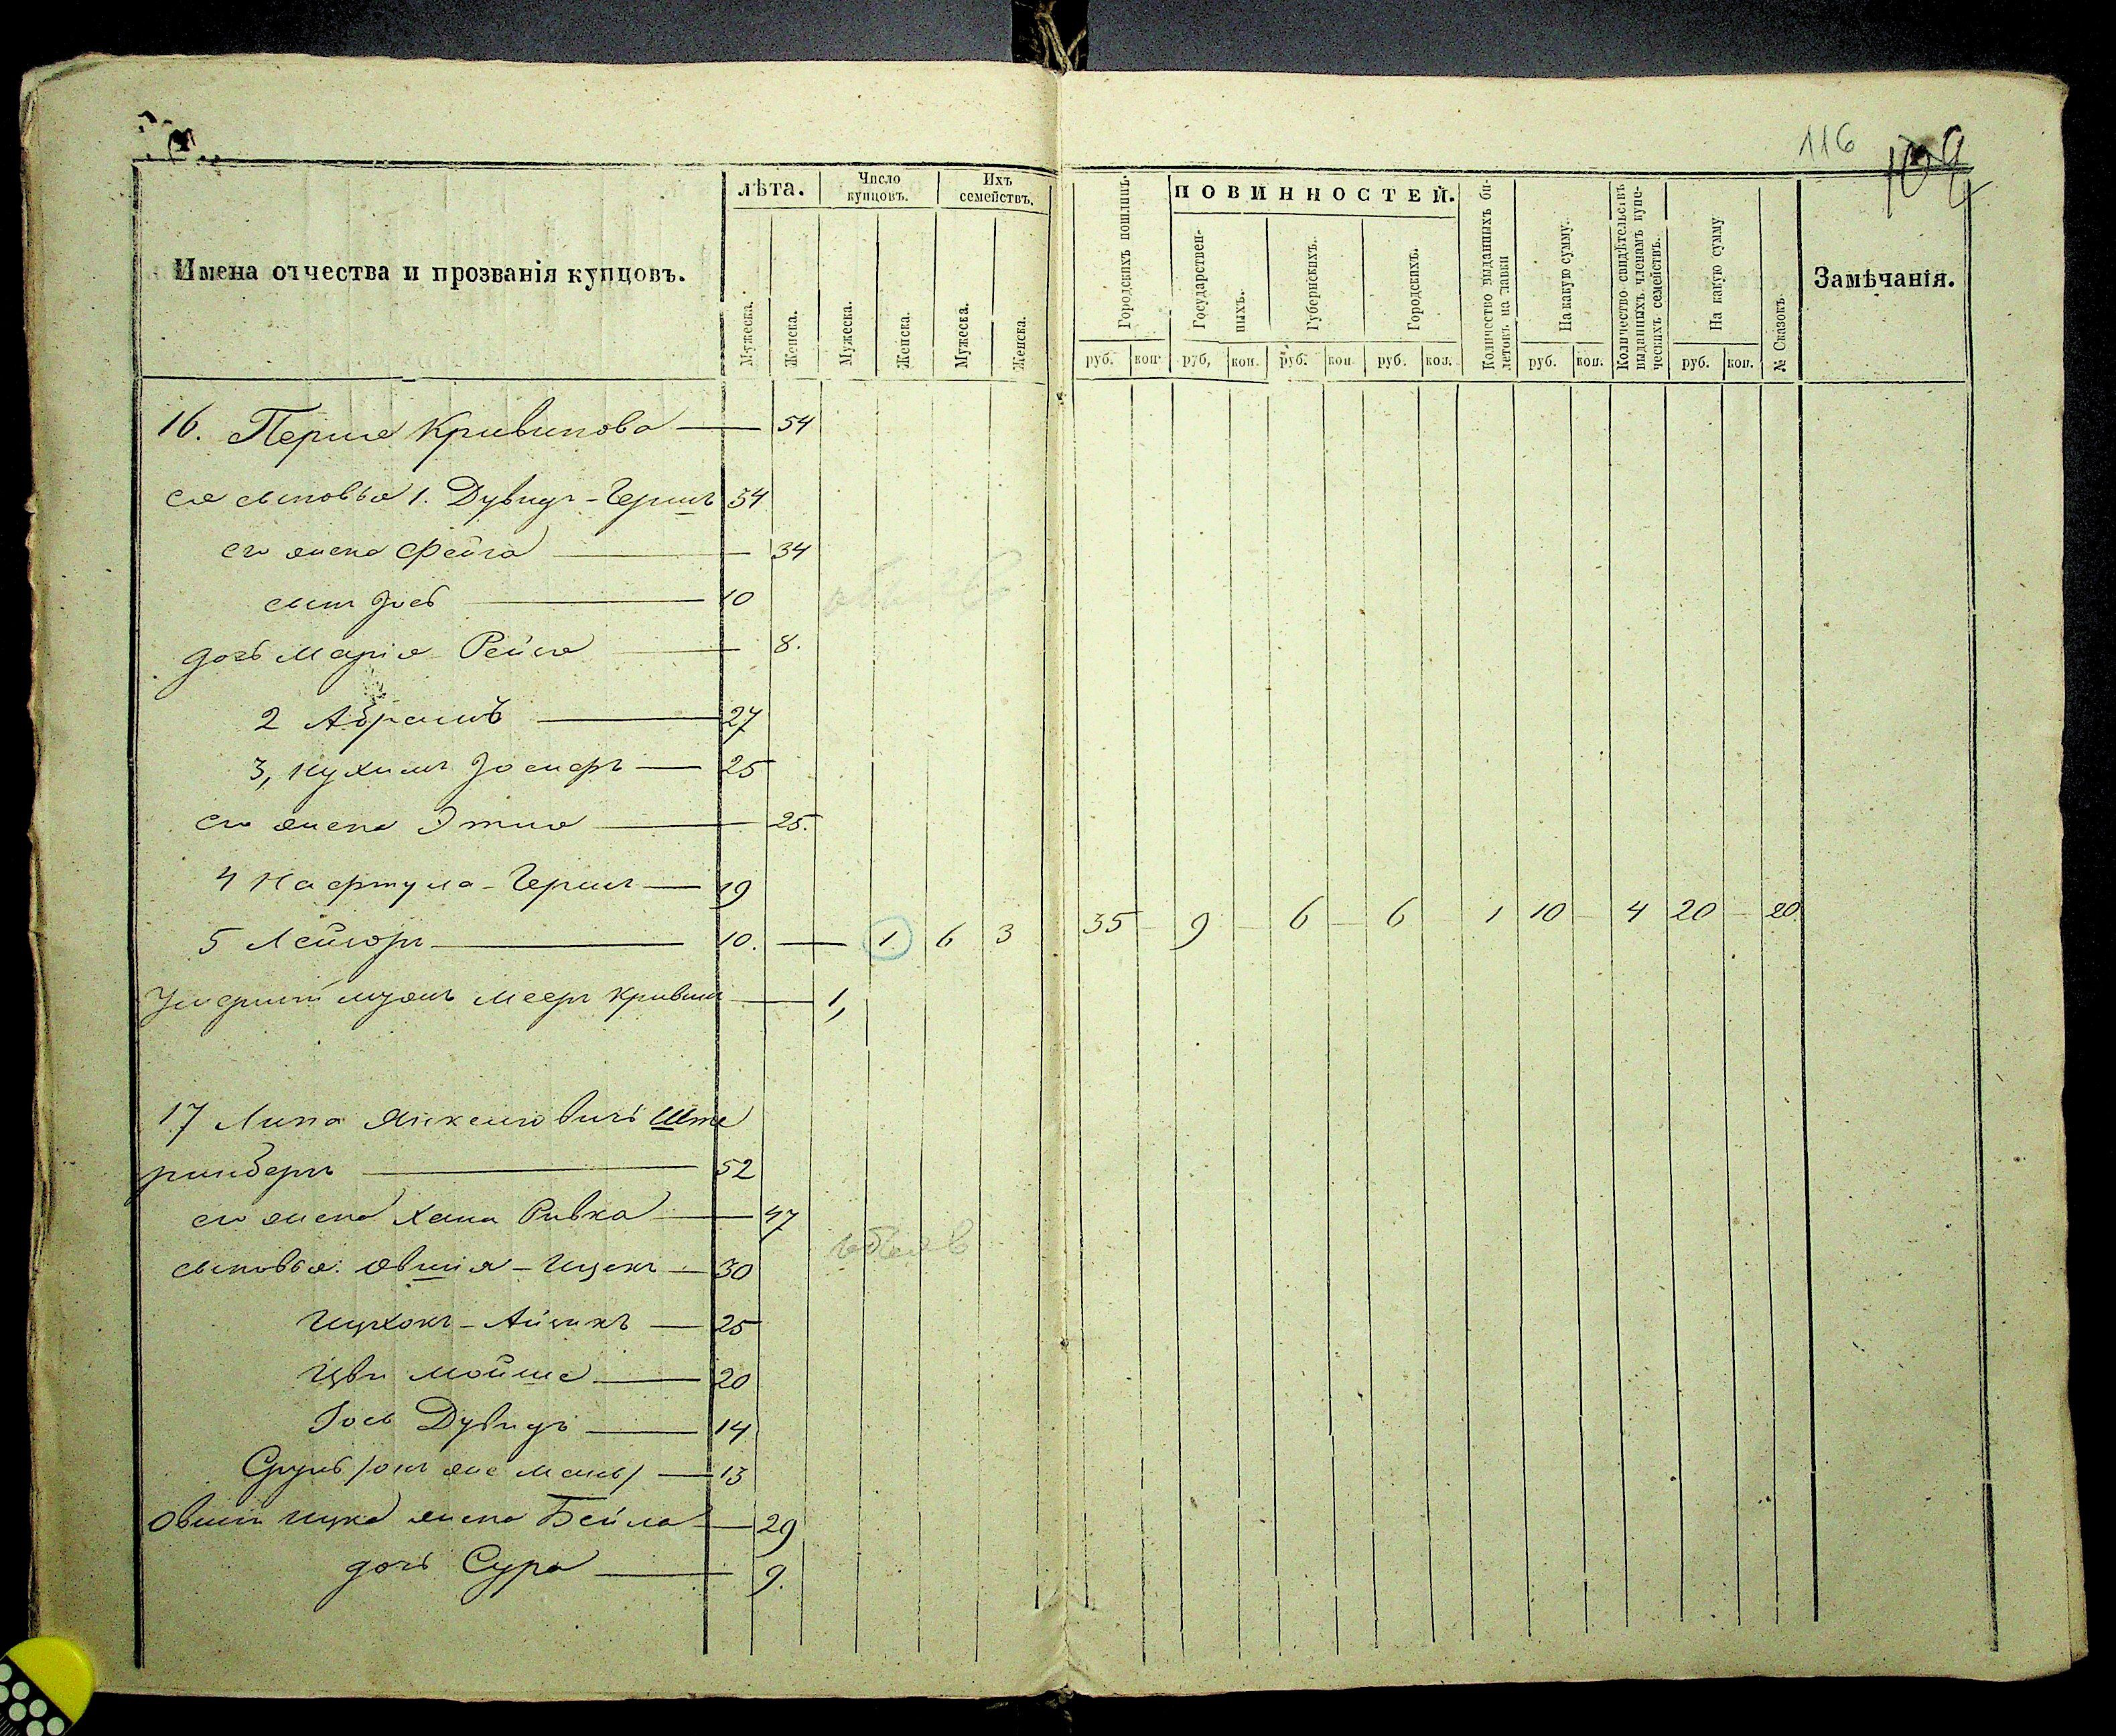 116
109
Имена отчества и прозванія купцовъ.
лѣта.
Мужеска.
Женска.
Число купцовъ.
Мужеска.
Женска.
Ихъ семействъ.
Мужеска.
Женска.
Городскихъ пошлинъ.
руб. коп.
ПОВИННОСТЕЙ.
Государственныхъ.
руб, коп.
Губернскихъ.
руб. коп
Городскихъ.
руб. коп.
Количество выданныхъ билетовъ на лавки
На какую сумму.
руб. коп.
Количество свидѣтельствъ выданныхъ членамъ купеческихъ семействъ.
На какую сумму
руб. коп.
№ Сказокъ.
Замѣчанія.
16. Перля Кривинова — 54
ея сыновья 1. Дувидъ-Гершъ 34
его жена Фейга — 34
сынъ Іось — 10
дочь Марія Рейза — 8.
2 Абрамъ — 27
3, Нухимъ Іосифъ — 25
его жена Этля — 25.
4 Нафтула-Гершъ — 19
5 Лейзоръ — 10. — 1. 6 3 35 — 9 — 6 — 6 1 10 — 4 20 — 20.
Умершій мужъ Мееръ Кривин — 1,
17 Липа Янкелиовичъ Ште
ринберъ — 52
его жена Хана Ривка — 47
сыновья: Овшія-Ицекъ — 30
Ицхокъ-Айзикъ — 25
Цви Мойше — 20
Іось Дувидъ — 14
Сруль /онъ же — 13
Овшіи Ицка жена Бейла — 29
дочь Сура — 9.